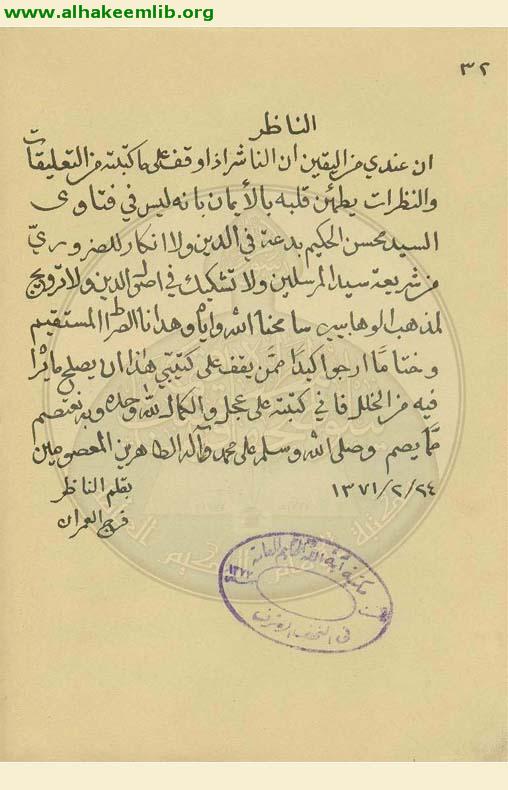 www.alhakeemlib.org
٣٢
الناظر
ان عندي من اليقين ان الناشر اذا وقف على ما كتبته من التعليقات
والنظرات يطمئن قلبه بالأيمان بانه ليس في فتاوى
السيد محسن الحكيم بدعة في الدين ولا انكار للضروريّ
من شريعة سيد المرسلين ولا تشكيك في اصول الدين ولا ترويج
لمذهب الوهابيين سامحنا الله واياه وهدانا الصراط المستقيم
وختامًا ارجو اكيدًا ممّن يقف على كتيبتي هذا ان يصلح ما يرا
فيه من الخلل فاني كتبته على عجل والكمال لله وحده وبه نعتصم
ممّا يصم وصلى الله وسلم على محمد وآله الطاهرين المعصومين
١٣٧١/٢/٢٤ بقلم الناظر
فرج العمران
مكتبة آية الله الحكيم العامة
في النجف الاشرف